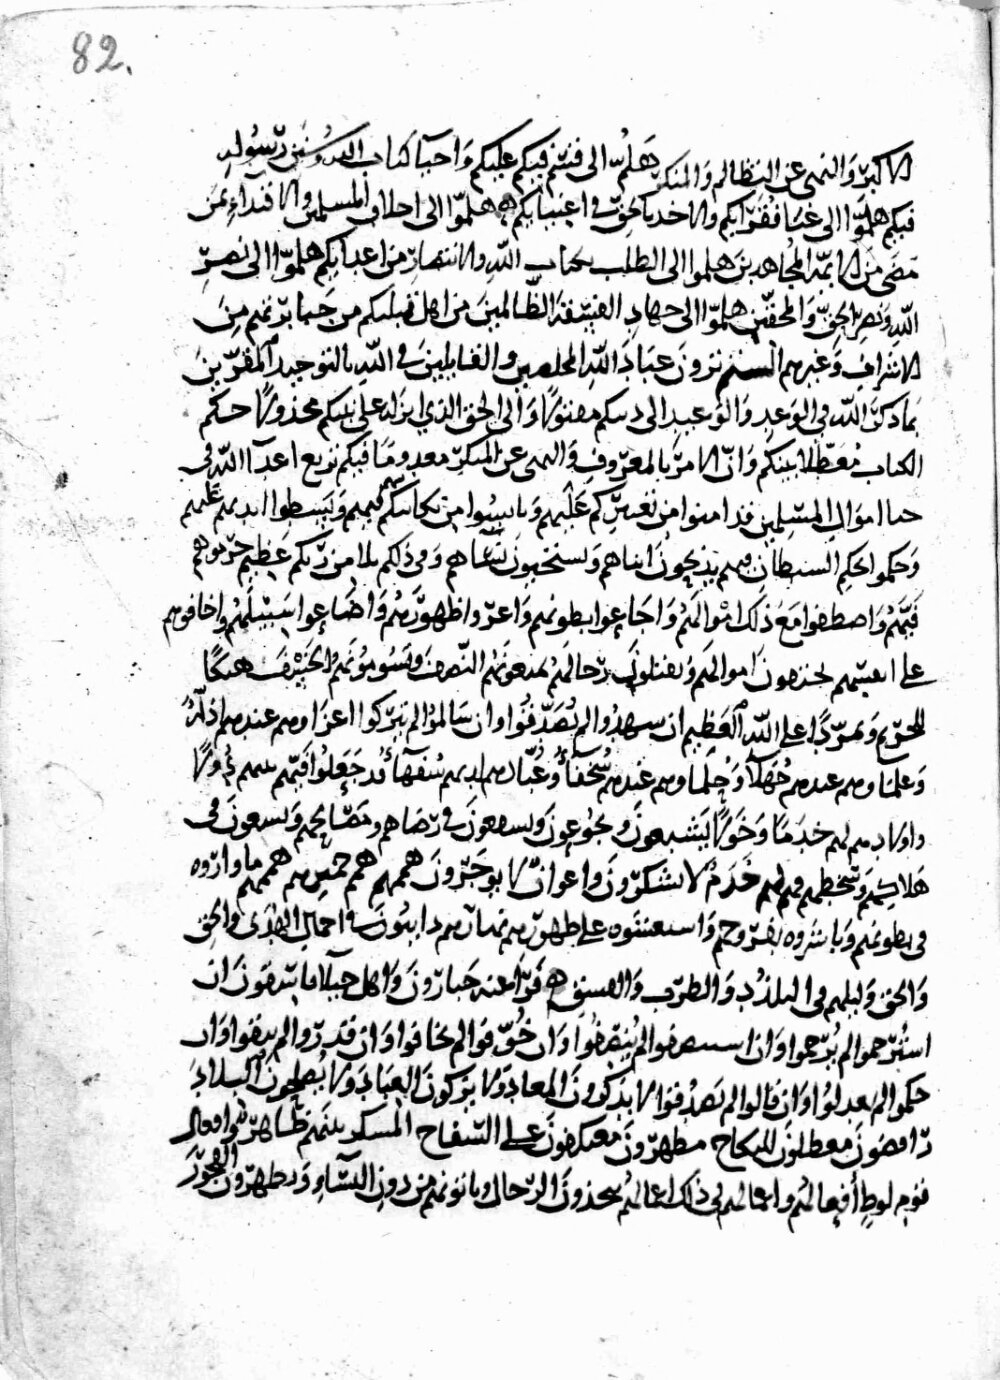 82.
الاكبر والنهي عن التظالم والمنكر هلم الى قسم فيكم عليكم واحيا كتاب الله وسنن رسوله
فيكم هلموا الى غنا فقرآيكم والاخذ بالحق في اغنيايكم هلموا الى اخلاق المسلمين والاقتداء بمن
مضى من الايمة المجاهدين هلموا الى الطلب بكتاب الله والانتصار من اعدايكم هلموا الى نصر
الله ونصر الحق والمحقين هلموا الى جهاد الفسقة الظالمين من اهل قبلتكم من جبابرتهم من
الاشراف وغيرهم الستم ترون عباد الله المخلصين والقايلين في الله بالتوحيد المقرين
بما ذكر الله في الوعد والوعيد الى دينكم مفتونا والى الحق الذي انزله على نبيكم مخذولا حكم
الكتاب معطلا بينكم وان الامر بالمعروف والنهي عن المنكر معدوما فيكم توزع اعدآ الله في
اموال المسلمين قد امنوا من عليهم ويايسوا من فيهم وبسطوا ايديهم عليهم
وحكموا بحكم الشيطان فيهم يذبحون ابناهم ويستحيون نساهم وفي ذلكم بلا من ربكم عظيم
فيهم واصطفوا مع ذلك اموالهم واجاعوا بطونهم واعروا ظهورهم واضاعوا سبيلهم واخافوهم
على انفسهم اموالهم ويقتلون رجالهم يمنعونهم النصف ويسومونهم الخسف هتكا
للحريم وتمردا على الله العظيم ان شهدوا لم يصدقوا وان سالموا لم يتركوا اعزا وهم عندهم اذلة
وعلمآ وهم عندهم جهلآ وحلما وهم عندهم سخفآ وعباد هم لديهم سفهآ قد جعلوا فيهم بينهم دولا
واولادهم لهم خدما وخولا يشبعون ويجوعون ويسعون في رضاهم ومصالحهم ويسعون في
هلاكهم وسخطهم فهم لهم خدم لا يشكرون واعوان لا يوجرون هممهم همم خسيسهم هممهم ما واروه
في بطونهم وباشروه بفروجهم على ظهورهم نهارهم دايبون في اخمال الهدى والحق
والحق وليلهم في التلذذ والطرب والفسق فراعنة جبارون واهل خيلا فاسقون ان
استرحموا لم يرحموا وان استنصفوا لم ينصفوا وان خوفوا لم يخافوا وان قدروا لم يبقوا وان
حكموا لم يعدلوا وان قالوا لم يصدقوا لا يذكرون المعاد ولا يتركون العباد ولا يصلحون البلاد
رافضون معطلون للنكاح مظهرون معتكفون على السفاح المنكر بينهم ظاهر
قوم لوط افعالهم واعمالهم في ذلك اعمالهم يتخذون الرجال وياتونهم من دون النسآء ويظهرون الفجور